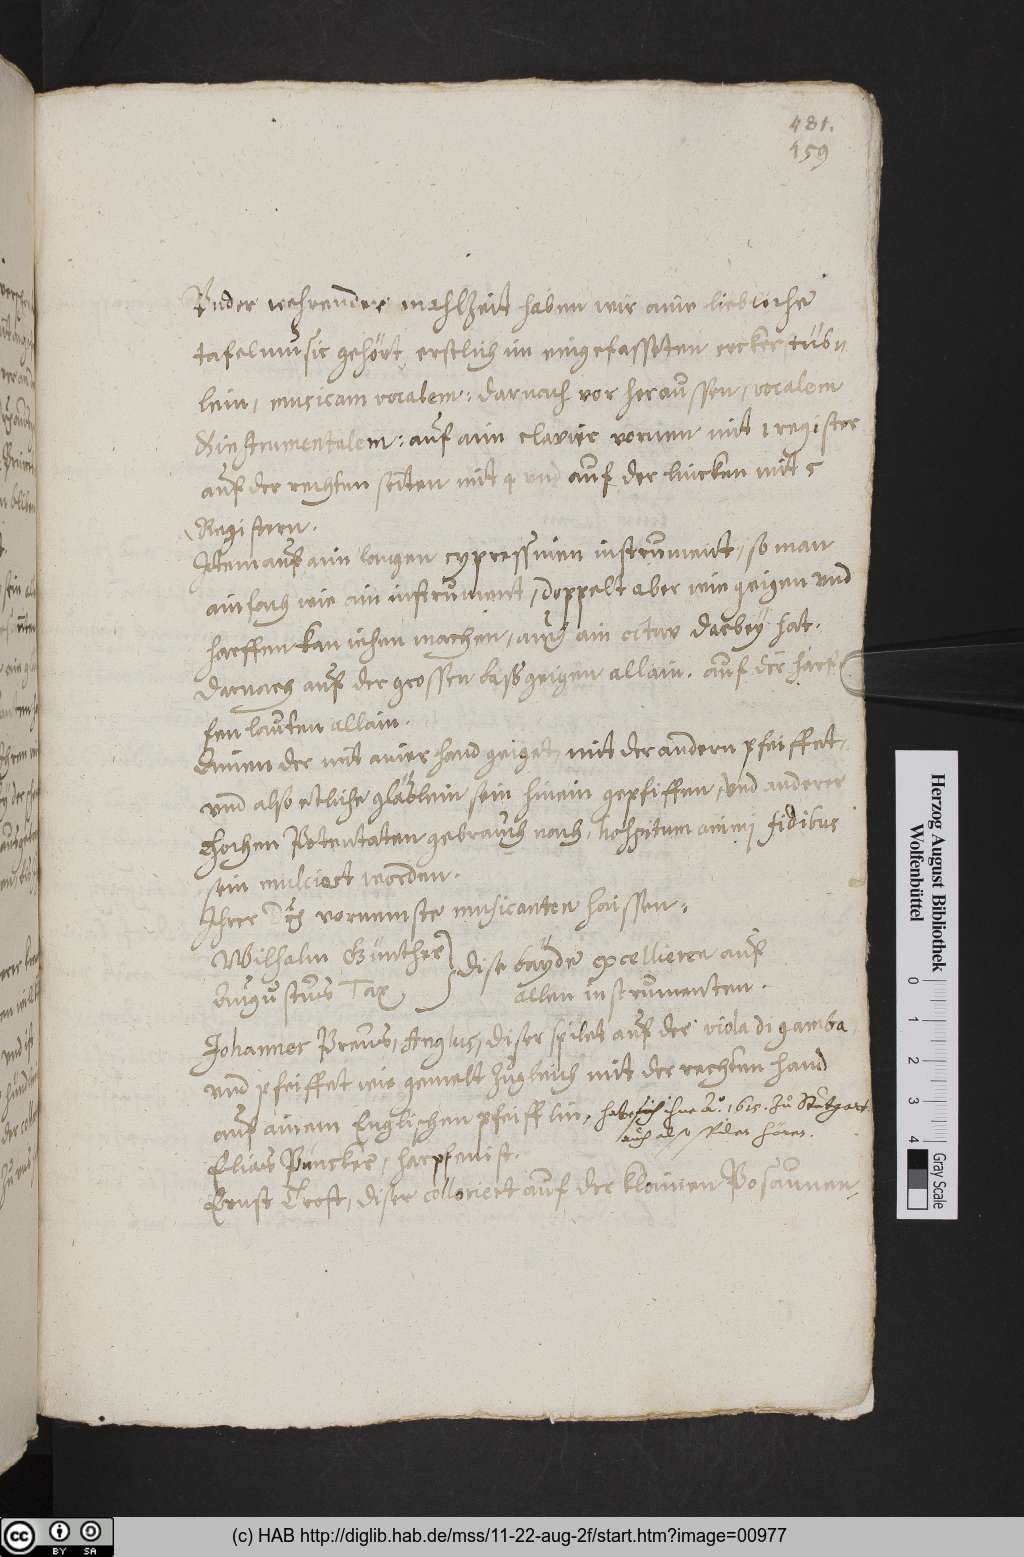 481.
159
Vnder wehrender mahlzeit haben wir aine liebliche
tafelmusic gehört, erstlich im eingefassten erckerstüb//
lein, musicam vocalem: darnach vor heraussen, vocalem
& instrumentalem: auf ain clavier vornen mit 1 register
auf der rechten seiten mit 4 und auf der lincken mit 5
Registern.
Item auf ain langen cypressinen instrument, so man
ainfach wie ain instrument, doppelt aber wie geigen vnd
harffen kan machen, auch ain octav darbey hat.
Darnach auf der grossen bassgeigen allain. auf der harf
fen lauten allain.
Einen der mit ainer hand geiget, mit der andern pfeiffet,
vnd also etliche gläslein sein hinein gepfiffen, vnd anderer
hochen Potentaten gebrauch nach, hospitum animi fidibus
sein mulciert worden.
Ihrer vornemste musicanten haissen:
Wilhalm Günther
Augustus Tax
} dise bayde excelliern auf
allen instrumenten.
Johannes Preus, Anglus, diser spilet auf der viola di gamba,
vnd pfeiffet wie gemelt zugleich mit der rechten hand
auf ainem Englischen pfeifflin, hab ich ihne Aº. 1615. zu Stutgart
auch also hören.
Elias Püncker, harpfenist.
Ernst Trost, diser colloriert auf der klainen Posaunen,
Herzog August Bibliothek
Wolfenbüttel
0 1 2 3 4
Gray Scale
cc BY SA
(c) HAB http://diglib.hab.de/mss/11-22-aug-2f/start.htm?image=00977